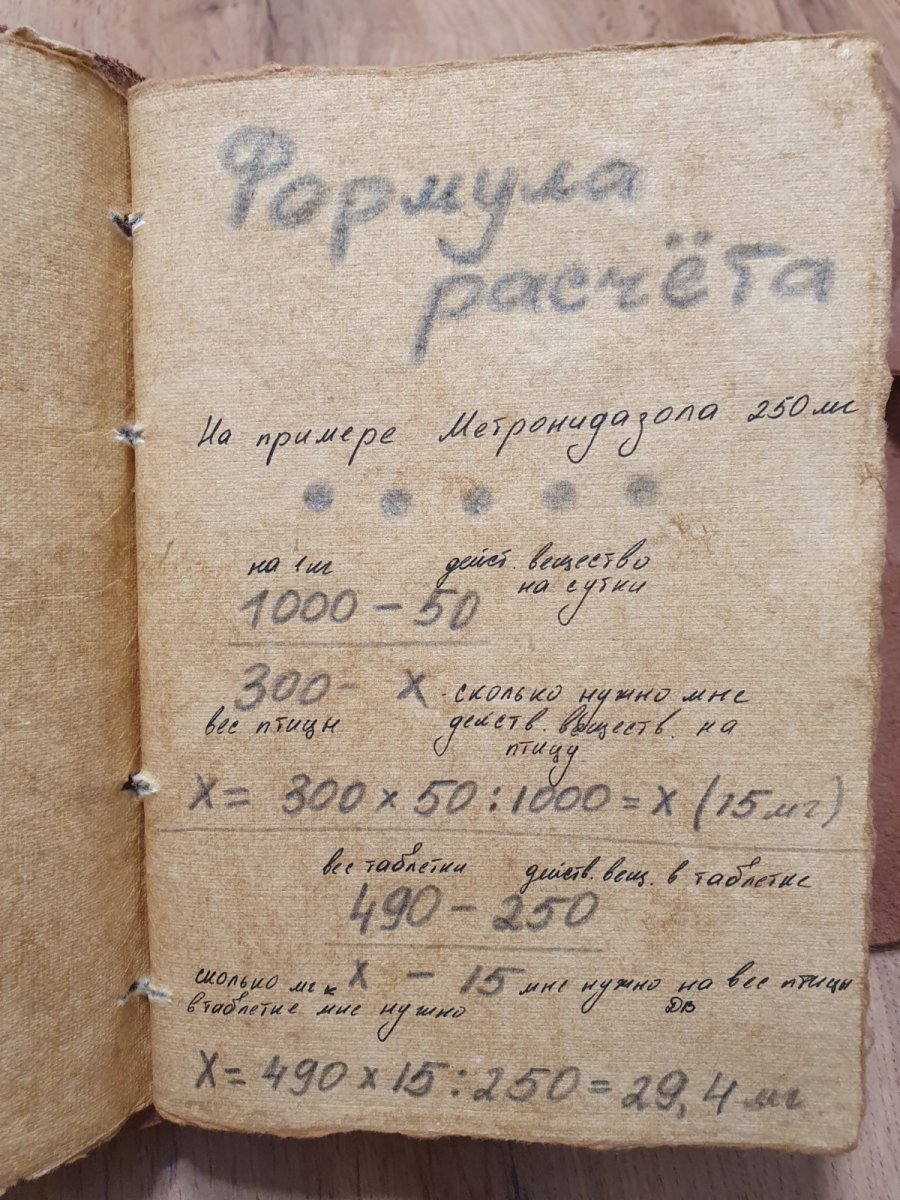 Формула
расчёта
На примере Метронидазола 250 мг
на 1 кг дейст. вещество
на сутки
1000 - 50
300 - X - сколько нужно мне
вес птицы действ. веществ. на
птицу
X = 300 x 50 : 1000 = X (15 мг)
вес таблетки действ. вещ. в таблетке
490 - 250
сколько мг X - 15 мне нужно на вес птицы
в таблетке мне нужно ДВ
X = 490 x 15 : 250 = 29,4 мг